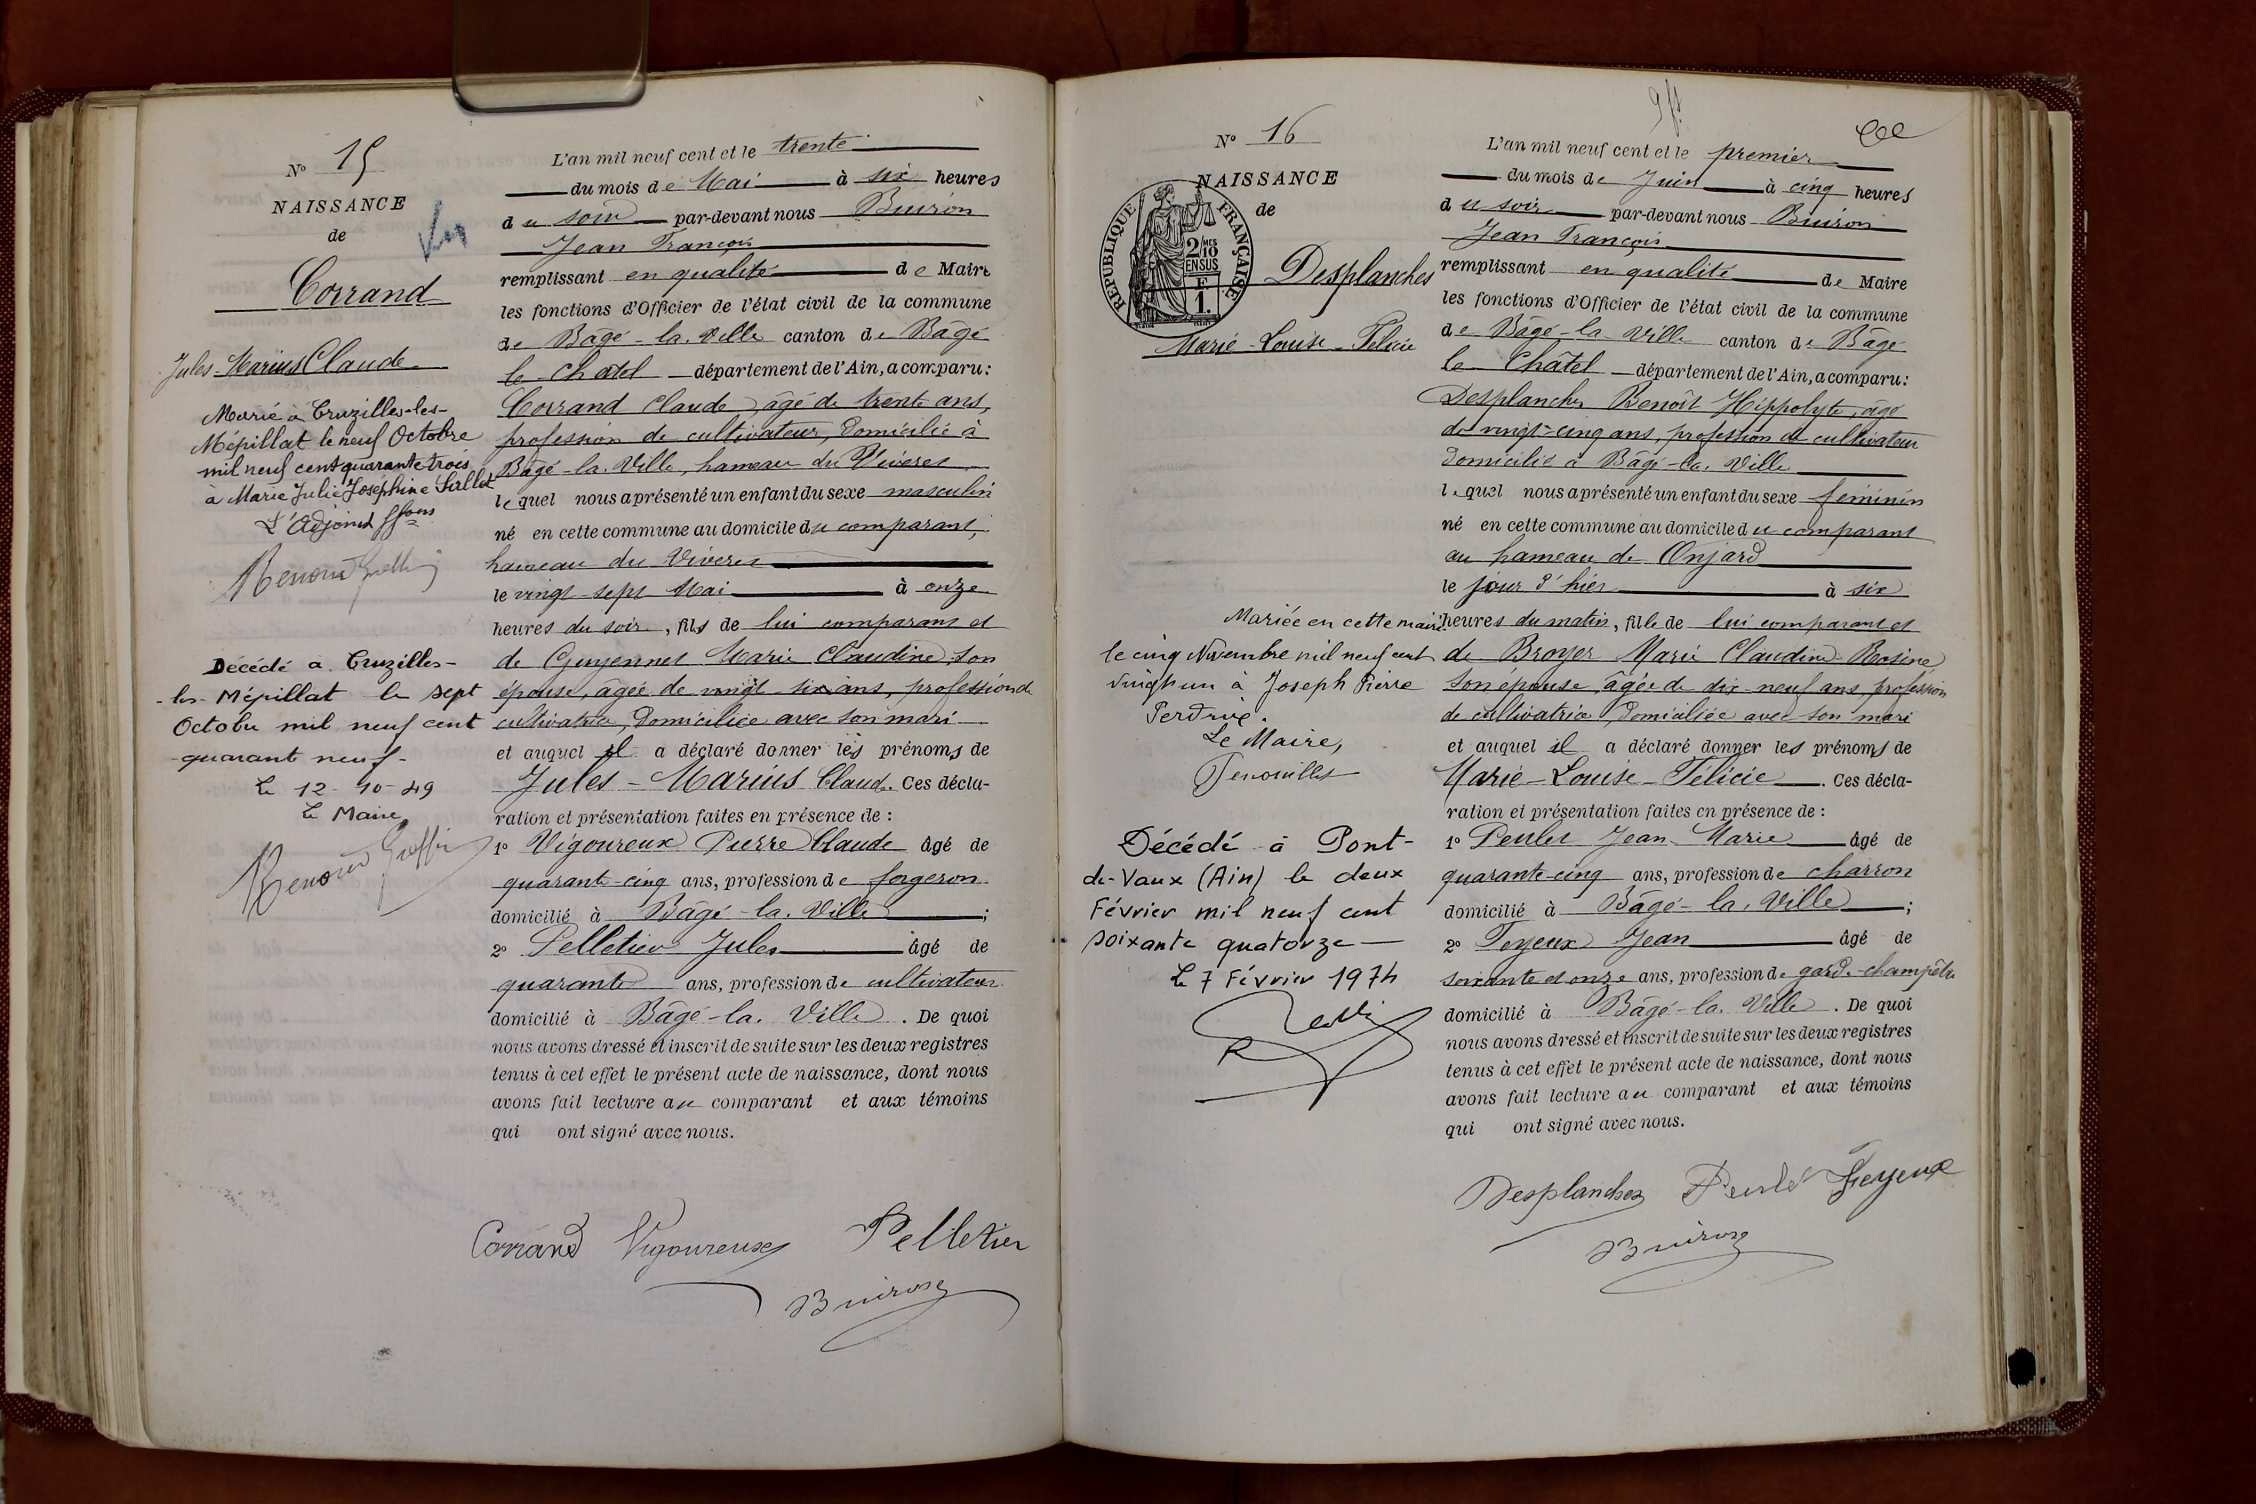 Nº 15
NAISSANCE
de
Corrand
Jules-Marius Claude
Marié à Cruzilles-les-
Mépillat le neuf Octobre
mil neuf cent quarante trois
à Marie Julie Joséphine
L'Adjoint ff ons
Renoud
Décédé à Cruzilles-
-les-Mépillat le sept
Octobre mil neuf cent
quarante neuf-
Le 12-10-49
Le Maire
Renoud
L'an mil neuf cent et le trente
du mois de Mai à six heures
du soir par-devant nous Buiron
Jean François
remplissant en qualité de Maire
les fonctions d'Officier de l'état civil de la commune
de Bâgé-la-Ville canton de Bâgé
le Châtel département de l'Ain, a comparu:
Corrand Claude, âgé de trente ans,
profession de cultivateur, domicilié à
Bâgé-la-Ville, hameau du Viveret
lequel nous a présenté un enfant du sexe masculin
né en cette commune au domicile du comparant,
hameau du Viveret
le vingt-sept Mai à onze
heures du soir, fils de lui comparant et
de Guyennet Marie Claudine, son
épouse, âgée de vingt-six ans, profession de
cultivatrice, domiciliée avec son mari
et auquel il a déclaré donner les prénoms de
Jules-Marius Claude. Ces décla-
ration et présentation faites en présence de :
1º Vigoureux Pierre Claude âgé de
quarante-cinq ans, profession de forgeron
domicilié à Bâgé-la-Ville ;
2º Pelletier Jules âgé de
quarante ans, profession de cultivateur
domicilié à Bâgé-la-Ville. De quoi
nous avons dressé et inscrit de suite sur les deux registres
tenus à cet effet le présent acte de naissance, dont nous
avons fait lecture au comparant et aux témoins
qui ont signé avec nous.
Corrand Vigoureux Pelletier
Buiron
Nº 16
NAISSANCE
de
RÉPUBLIQUE FRANÇAISE
2/10 MES
EN SUS
F
1.
Desplanches
Marie-Louise-Félicie
Mariée en cette mairie
le cinq Novembre mil neuf cent
vingt un à Joseph Pierre
Perdrix.
Le Maire,
Décédé à Pont-
de-Vaux (Ain) le deux
Février mil neuf cent
soixante quatorze
Le 7 Février 1974
L'an mil neuf cent et le premier
du mois de Juin à cinq heures
du soir par-devant nous Buiron
Jean François
remplissant en qualité de Maire
les fonctions d'Officier de l'état civil de la commune
de Bâgé-la-Ville canton de Bâgé
le Châtel département de l'Ain, a comparu:
Desplanches Benoît Hippolyte, âgé
de vingt-cinq ans, profession de cultivateur
domicilié à Bâgé-la-Ville
lequel nous a présenté un enfant du sexe féminin
né en cette commune au domicile du comparant
au hameau de Onjard
le jour d'hier à six
heures du matin, fille de lui comparant et
de Broyer Marie Claudine-Rosine
son épouse, âgée de dix-neuf ans, profession
de cultivatrice, domiciliée avec son mari
et auquel il a déclaré donner les prénoms de
Marie-Louise-Félicie. Ces décla-
ration et présentation faites en présence de :
1º Peulet Jean-Marie âgé de
quarante-cinq ans, profession de charron
domicilié à Bâgé-la-Ville ;
2º Feyeux Jean âgé de
soixante et onze ans, profession de garde-champêtre
domicilié à Bâgé-la-Ville. De quoi
nous avons dressé et inscrit de suite sur les deux registres
tenus à cet effet le présent acte de naissance, dont nous
avons fait lecture au comparant et aux témoins
qui ont signé avec nous.
Desplanches Peulet Feyeux
Buiron